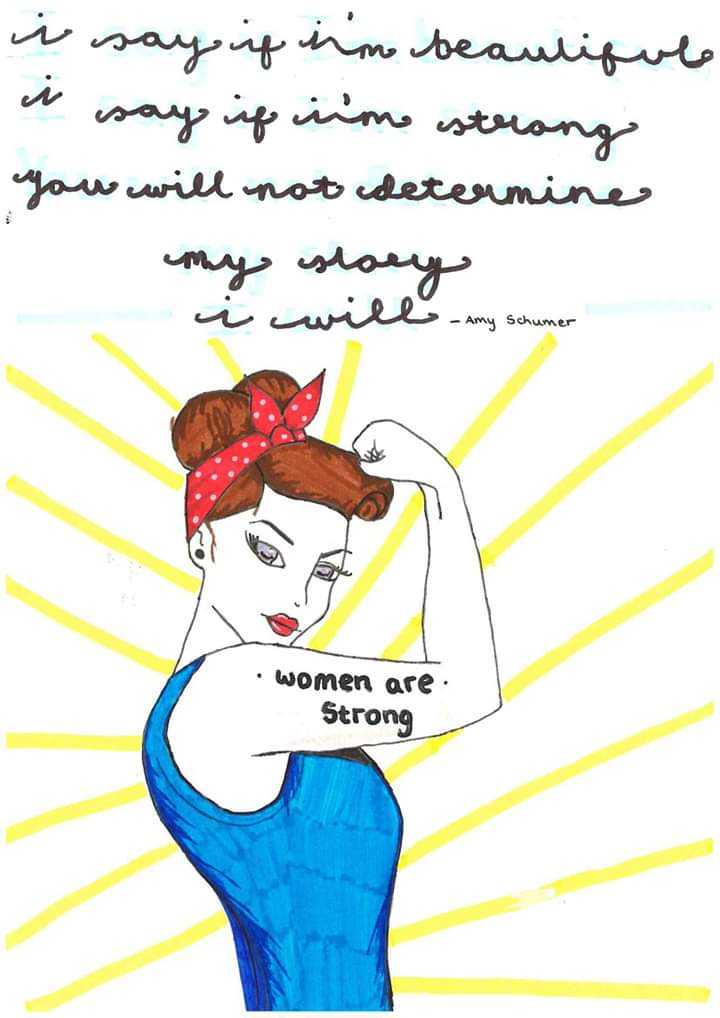 i say if i'm beautiful
i say if i'm strong
you will not determine
my story
i will - Amy Schumer
· women are ·
Strong